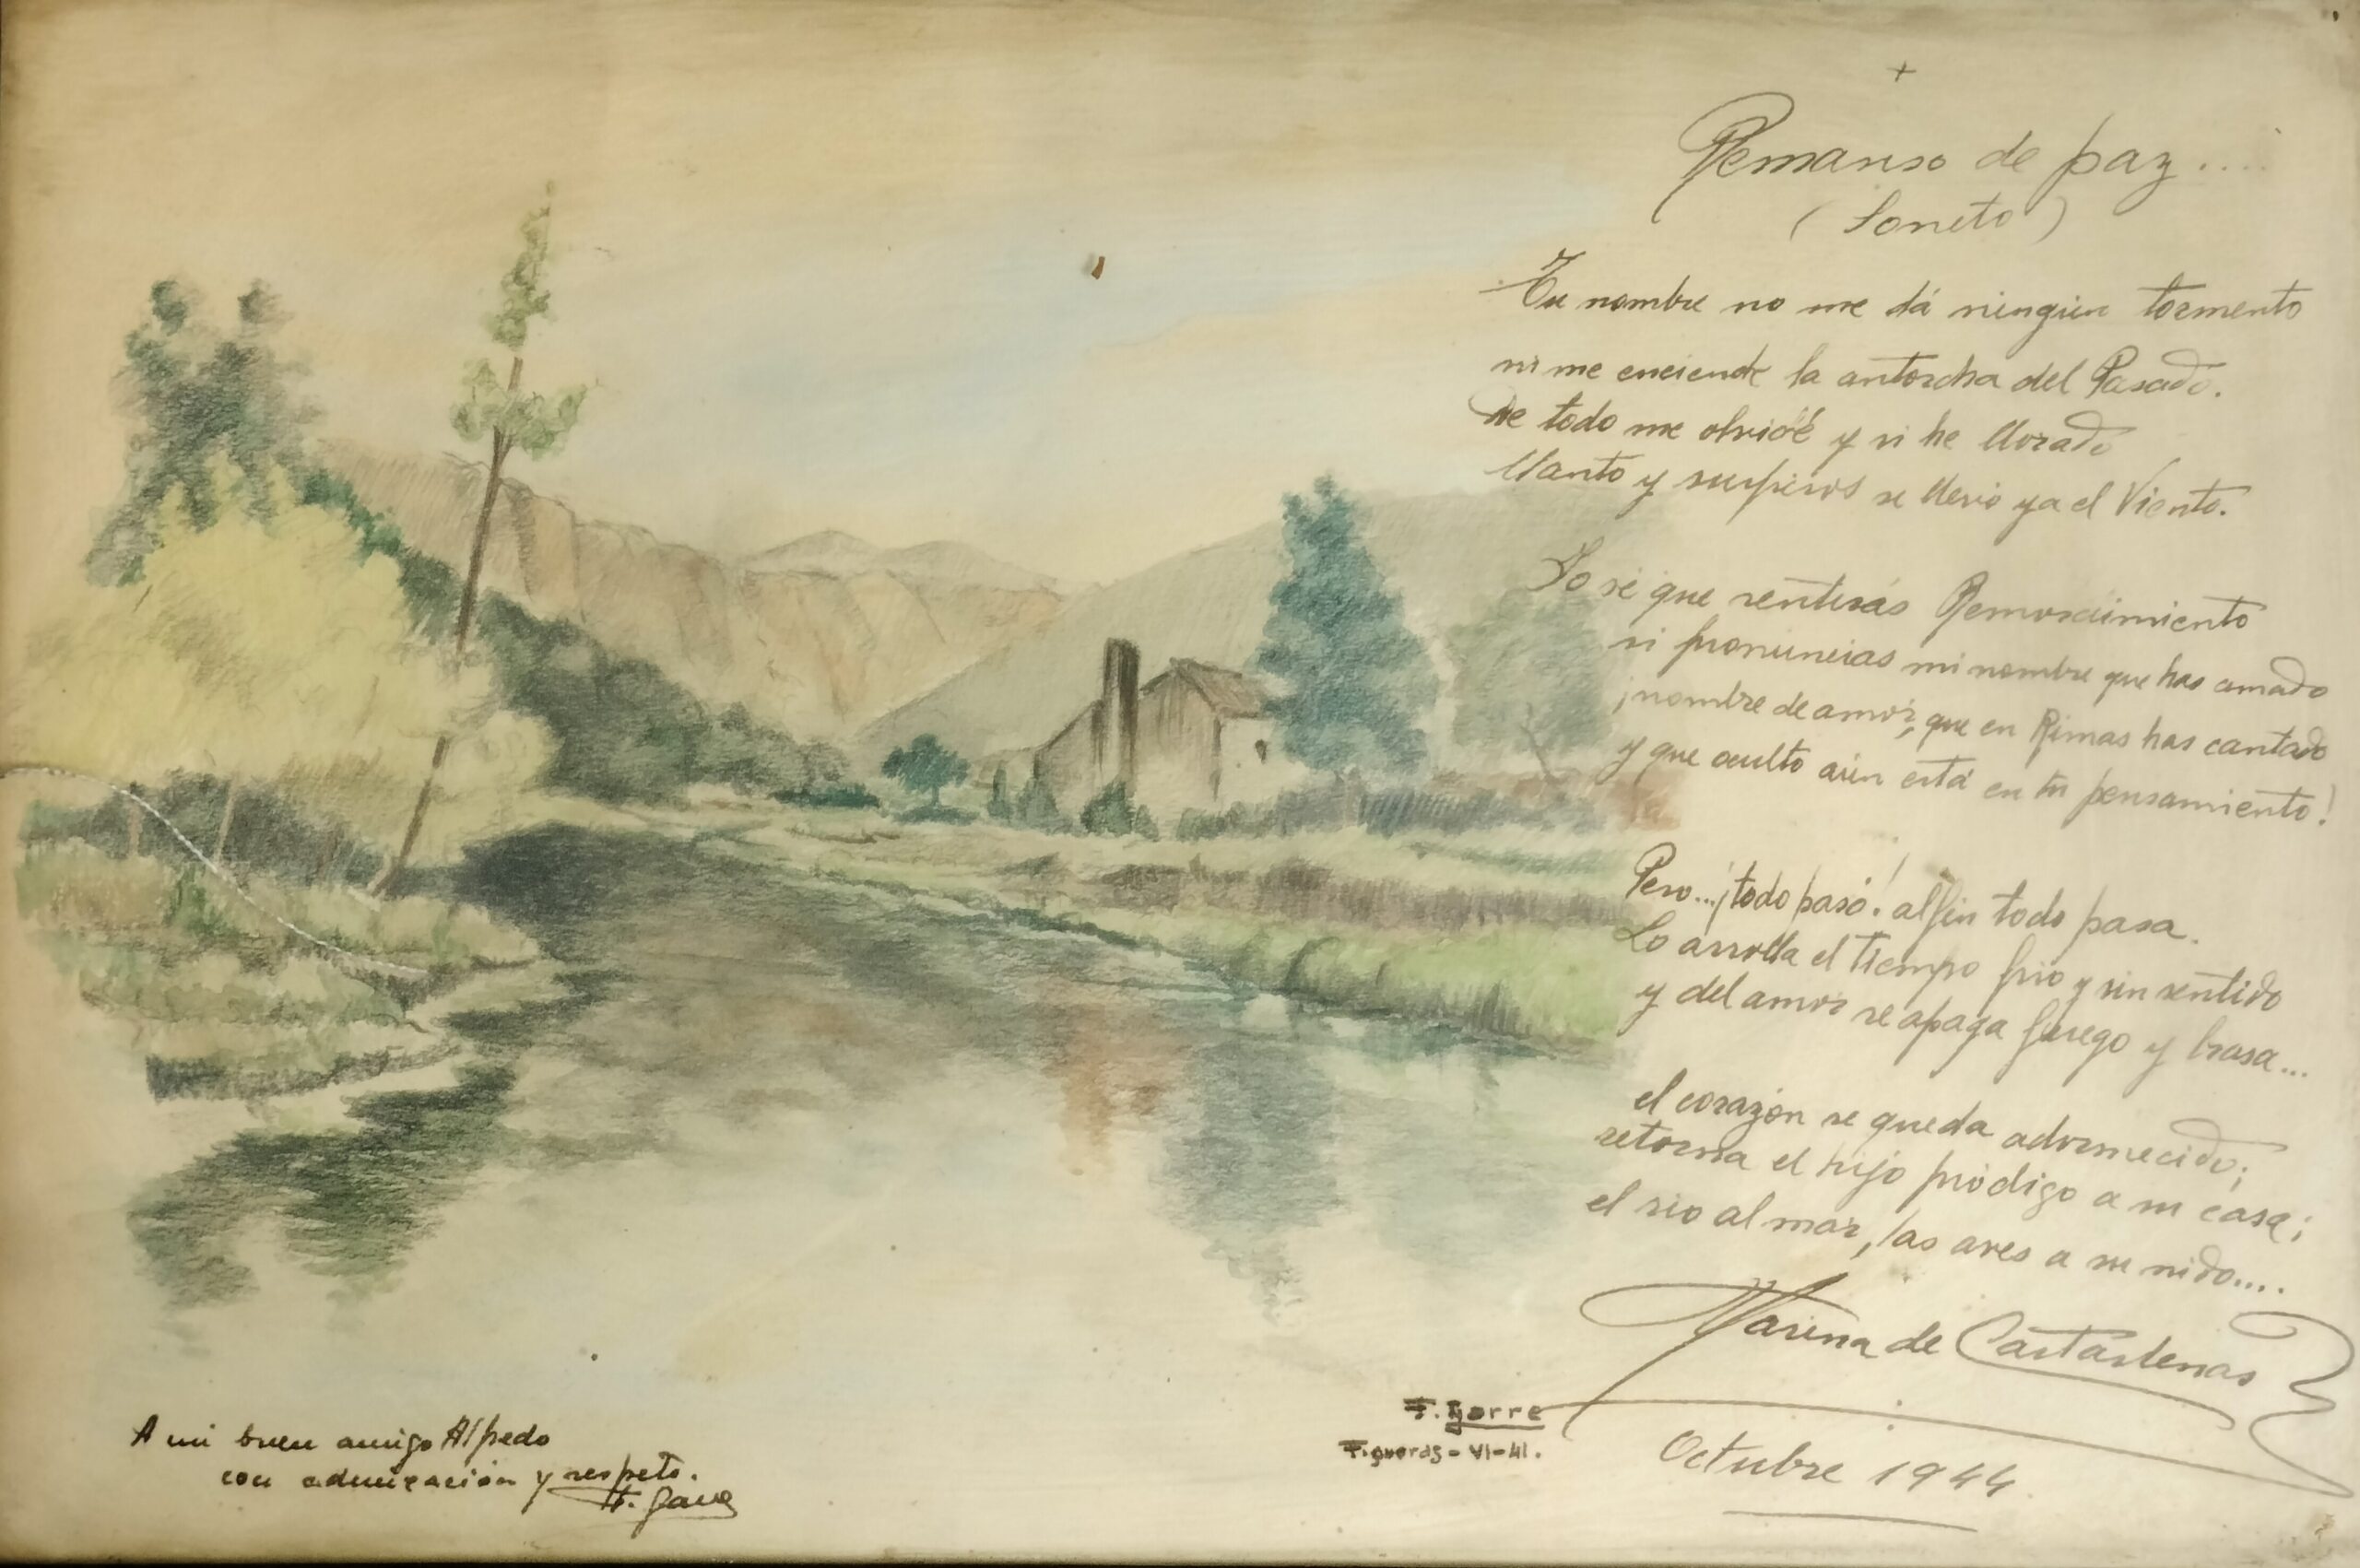 +
Remanso de paz....
(Soneto)
Tu nombre no me dá ningún tormento
ni me enciende la antorcha del Pasado.
De todo me olvidé y si he llorado
llanto y suspiros se llevó ya el Viento.
Yo sé que sentirás Remordimiento
si pronuncias mi nombre que has amado
¡nombre de amor, que en Rimas has cantado
y que oculto aún está en tu pensamiento!
Pero...¡todo pasó! al fin todo pasa.
Lo arrolla el tiempo frio y sin sentido
y del amor se apaga fuego y brasa...
el corazón se queda adormecido;
retorna el hijo pródigo a su casa;
el rio al mar, las aves a su nido....
Marina de Castarlenas
Octubre 1944
F. Garre
Figueras - VI-41.
A mi buen amigo Alfredo
con admiración y respeto.
F. Garre